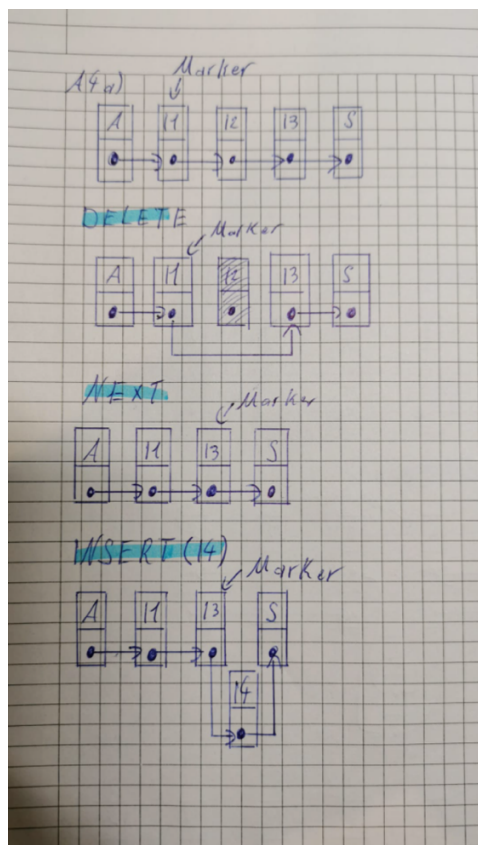 A4 a)
Marker
A I1 I2 I3 S
DELETE
Marker
A I1 I2 I3 S
NEXT
Marker
A I1 I3 S
INSERT (I4)
Marker
A I1 I3 S
I4